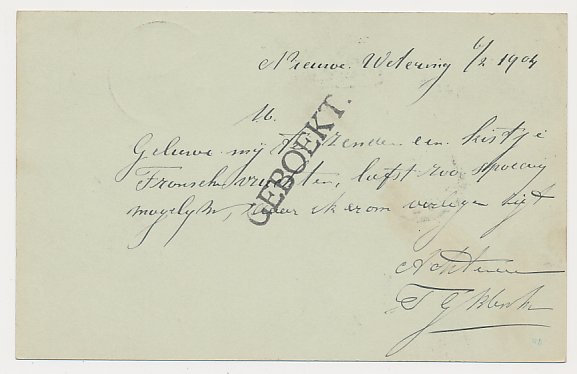 Nieuwe Wetering 6/2 1904
M.
Gelieve mij te zenden een kistje
Fransche, liefst zoo spoedig
mogelijk, daar ik erom verlegen
GEBOEKT.
Achtend
T